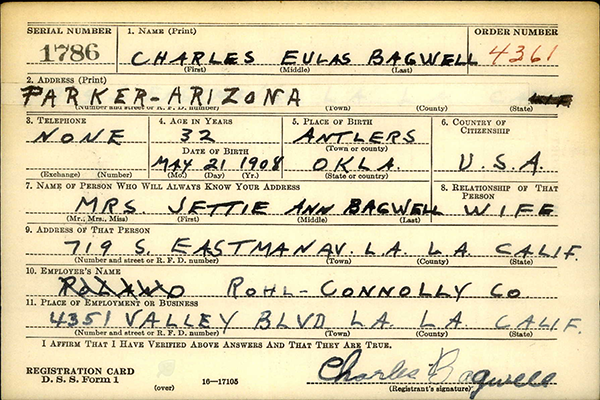 SERIAL NUMBER 1. NAME (Print) ORDER NUMBER
1786 CHARLES EULAS BAGWELL 4361
(First) (Middle) (Last)
2. ADDRESS (Print)
PARKER-ARIZONA
(Number and street or R. F. D. number) (Town) (County) (State)
3. TELEPHONE 4. AGE IN YEARS 5. PLACE OF BIRTH 6. COUNTRY OF CITIZENSHIP
NONE 32 ANTLERS
(Town or county)
DATE OF BIRTH
MAY 21 1908 OKLA. U.S.A.
(Exchange) (Number) (Mo.) (Day) (Yr.) (State or country)
7. NAME OF PERSON WHO WILL ALWAYS KNOW YOUR ADDRESS 8. RELATIONSHIP OF THAT PERSON
MRS. JETTIE ANN BAGWELL WIFE
(Mr., Mrs., Miss) (First) (Middle) (Last)
9. ADDRESS OF THAT PERSON
719 S. EASTMAN AV. L.A. L.A. CALIF.
(Number and street or R. F. D. number) (Town) (County) (State)
10. EMPLOYER'S NAME
ROHL-CONNOLLY CO
11. PLACE OF EMPLOYMENT OR BUSINESS
4351 VALLEY BLVD L.A. L.A. CALIF.
(Number and street or R. F. D. number) (Town) (County) (State)
I AFFIRM THAT I HAVE VERIFIED ABOVE ANSWERS AND THAT THEY ARE TRUE.
Charles Bagwell
REGISTRATION CARD
D. S. S. Form 1 (over) 16—17105 (Registrant's signature)